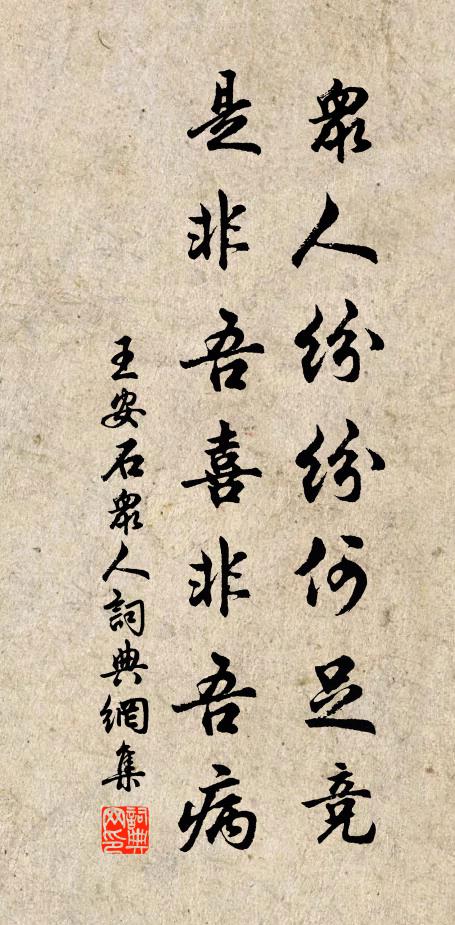 眾人紛紛何足競
是非吾喜非吾病
王安石眾人詞典網集
詞典網印